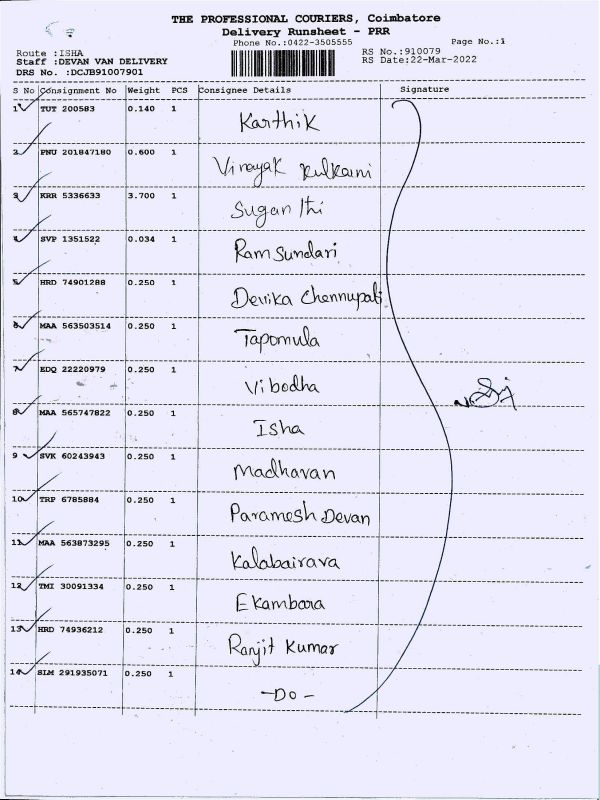 THE PROFESSIONAL COURIERS, Coimbatore
Delivery Runsheet - PRR
Phone No.:0422-3505555
Page No.:1
Route :ISHA
RS No.:910079
Staff :DEVAN VAN DELIVERY
RS Date:22-Mar-2022
DRS No. :DCJB91007901
S No Consignment No Weight PCS Consignee Details Signature
1 TUT 200583 0.140 1
Karthik
2 PNU 201847180 0.600 1
Vinayak Kulkarni
3 KRR 5336633 3.700 1
Suganthi
4 SVP 1351522 0.034 1
Ram Sundari
5 HRD 74901288 0.250 1
Devika Chennupati
6 MAA 563503514 0.250 1
Tapomula
7 EDQ 22220979 0.250 1
Vibodha
8 MAA 565747822 0.250 1
Isha
9 SVK 60243943 0.250 1
Madhavan
10 TRP 6785884 0.250 1
Paramesh Devan
11 MAA 563873295 0.250 1
Kalabairava
12 TMI 30091334 0.250 1
Ekambara
13 HRD 74936212 0.250 1
Ranjit Kumar
14 SLM 291935071 0.250 1
-Do-